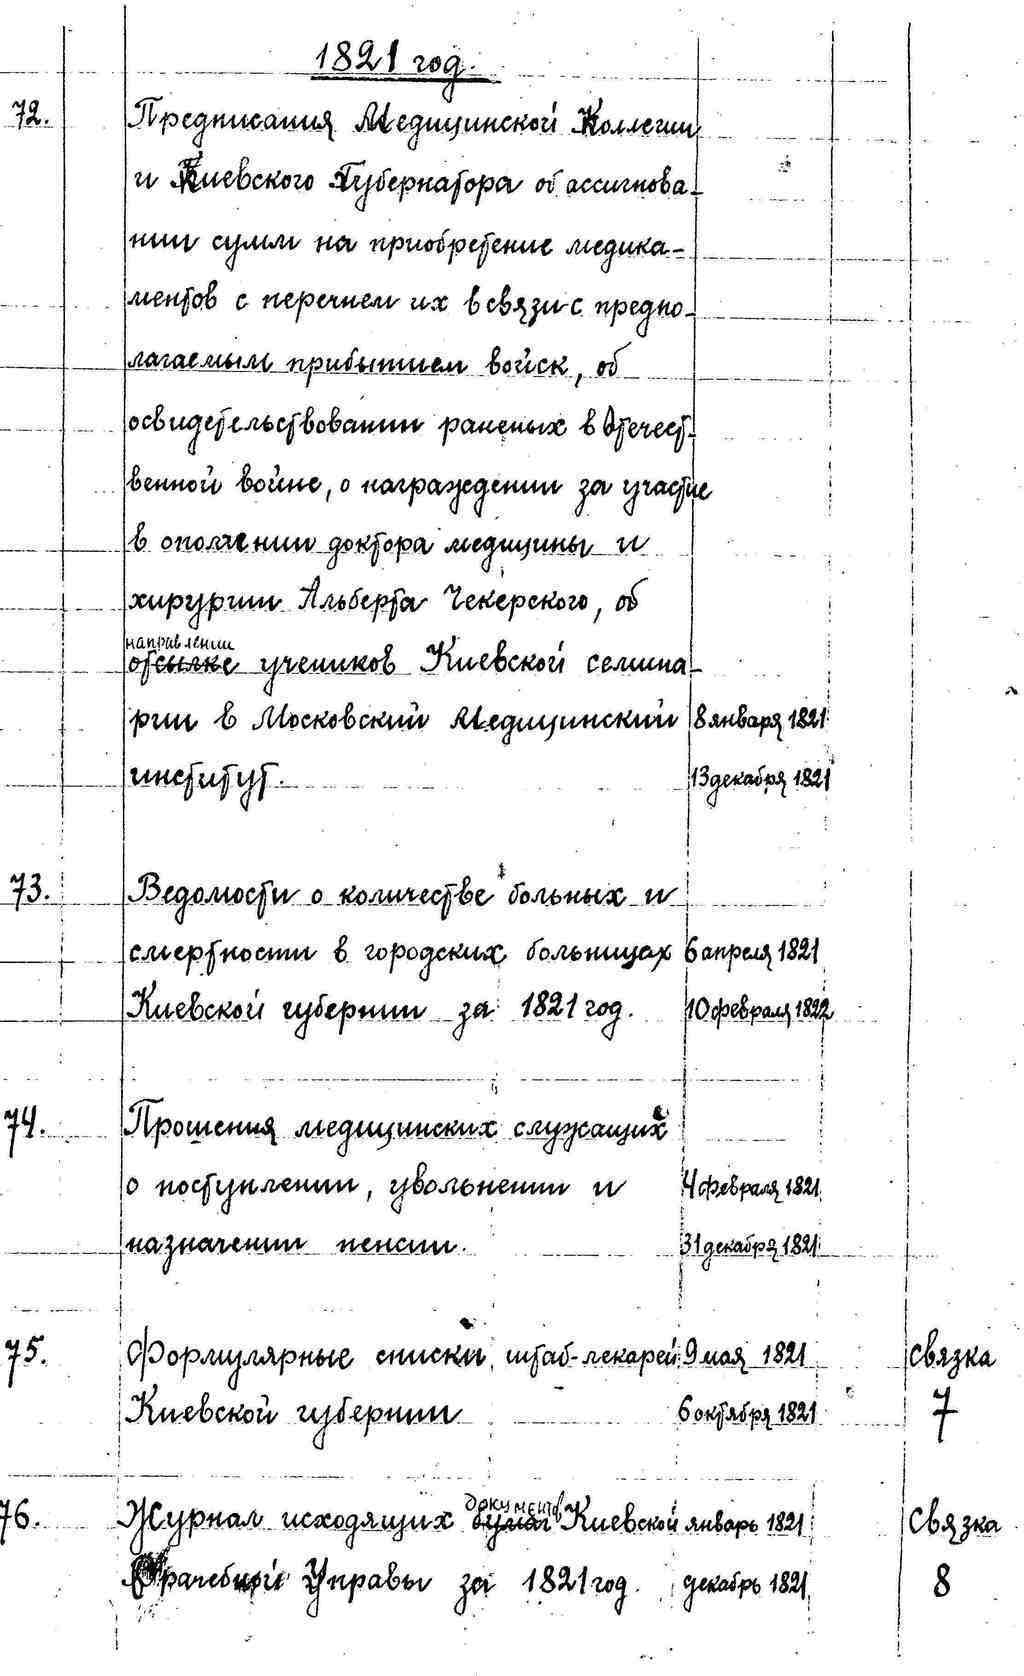 1821 год.
72. Предписания Медицинской Коллегии
и Киевского Губернатора об ассигнова-
нии сумм на приобретение медика-
ментов с перечнем их в связи с предпо-
лагаемым прибытием войск, об
освидетельствовании раненых в Отечест-
венной войне, о награждении за участие
в ополчении доктора медицины и
хирургии Альберта Чекерского, об
направлении
отсылке учеников Киевской семина-
рии в Московский Медицинский 8 января 1821
институт. 13 декабря 1821
73. Ведомости о количестве больных и
смертности в городских больницах 6 апреля 1821
Киевской губернии за 1821 год. 10 февраля 1822
74. Прошения медицинских служащих
о поступлении, увольнении и 4 февраля 1821
назначении пенсии. 31 декабря 1821
75. Формулярные списки штаб-лекарей 9 мая 1821 связка
Киевской губернии 6 октября 1821 7
документов
76. Журнал исходящих бумаг Киевской январь 1821 Связка
Врачебной Управы за 1821 год. декабрь 1821 8